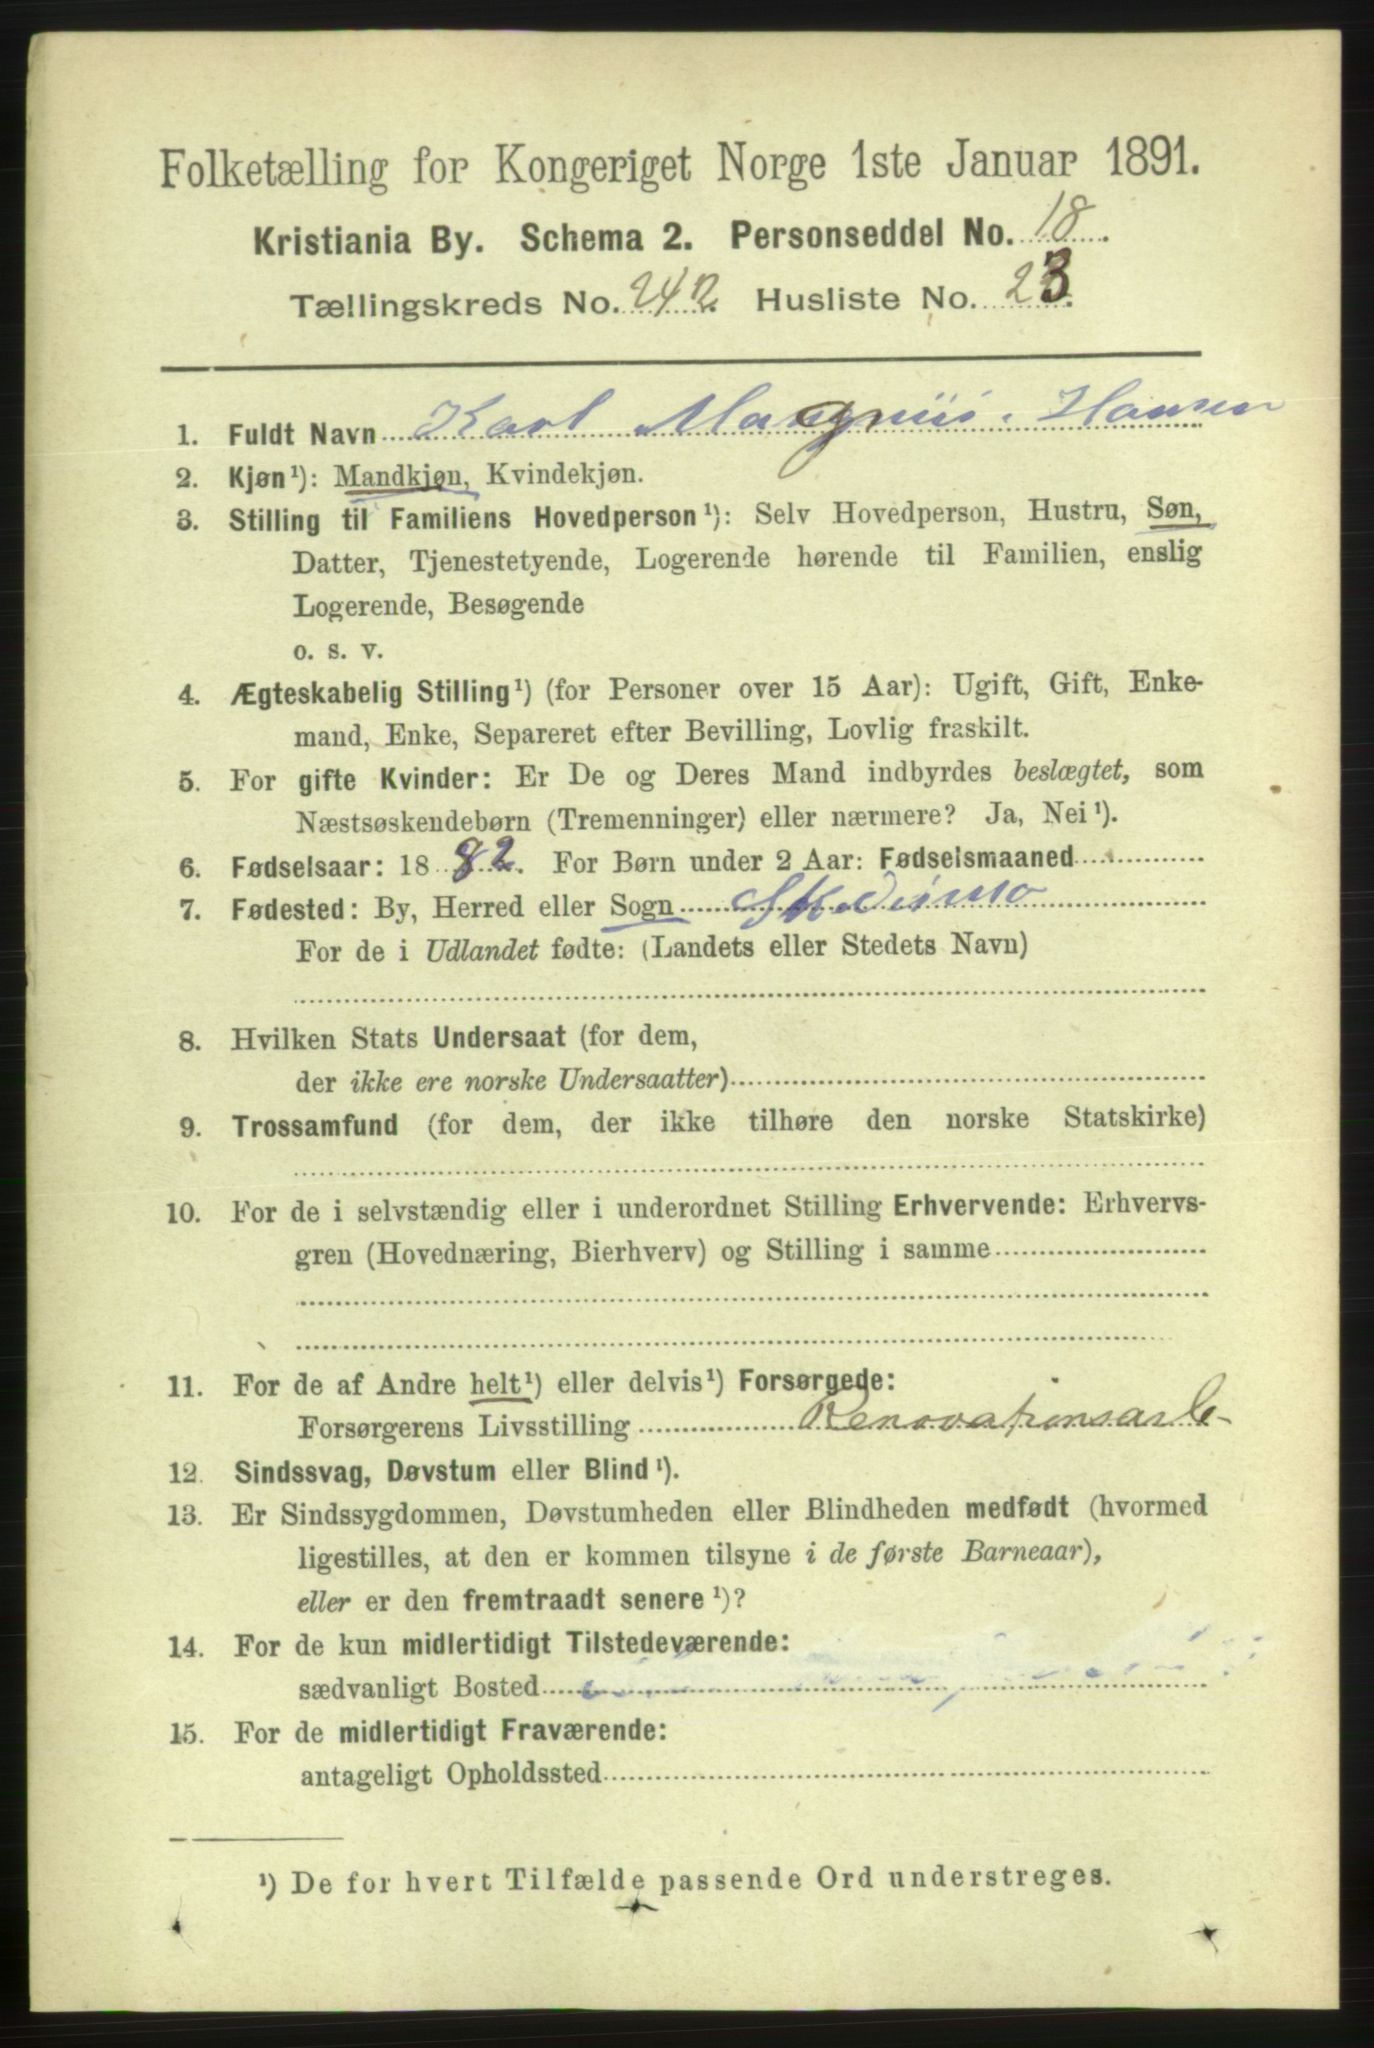 Folketælling for Kongeriget Norge 1ste Januar 1891.
Kristiania By. Schema 2. Personseddel No. 18.
Tællingskreds No. 242. Husliste No. 23.
1. Fuldt Navn Karl Magnus Hansen
2. Kjøn¹): Mandkjøn, Kvindekjøn.
3. Stilling til Familiens Hovedperson¹): Selv Hovedperson, Hustru, Søn,
Datter, Tjenestetyende, Logerende hørende til Familien, enslig
Logerende, Besøgende
o. s. v.
4. Ægteskabelig Stilling¹) (for Personer over 15 Aar): Ugift, Gift, Enke-
mand, Enke, Separeret efter Bevilling, Lovlig fraskilt.
5. For gifte Kvinder: Er De og Deres Mand indbyrdes beslægtet, som
Næstsøskendebørn (Tremenninger) eller nærmere? Ja, Nei¹).
6. Fødselsaar: 1882. For Børn under 2 Aar: Fødselsmaaned
7. Fødested: By, Herred eller Sogn Skedsmo
For de i Udlandet fødte: (Landets eller Stedets Navn)
8. Hvilken Stats Undersaat (for dem,
der ikke ere norske Undersaatter)
9. Trossamfund (for dem, der ikke tilhøre den norske Statskirke)
10. For de i selvstændig eller i underordnet Stilling Erhvervende: Erhvervs-
gren (Hovednæring, Bierhverv) og Stilling i samme
11. For de af Andre helt¹) eller delvis¹) Forsørgede:
Forsørgerens Livsstilling Renovationsarb-
12. Sindssvag, Døvstum eller Blind¹).
13. Er Sindssygdommen, Døvstumheden eller Blindheden medfødt (hvormed
ligestilles, at den er kommen tilsyne i de første Barneaar),
eller er den fremtraadt senere¹)?
14. For de kun midlertidigt Tilstedeværende:
sædvanligt Bosted
15. For de midlertidigt Fraværende:
antageligt Opholdssted
¹) De for hvert Tilfælde passende Ord understreges.